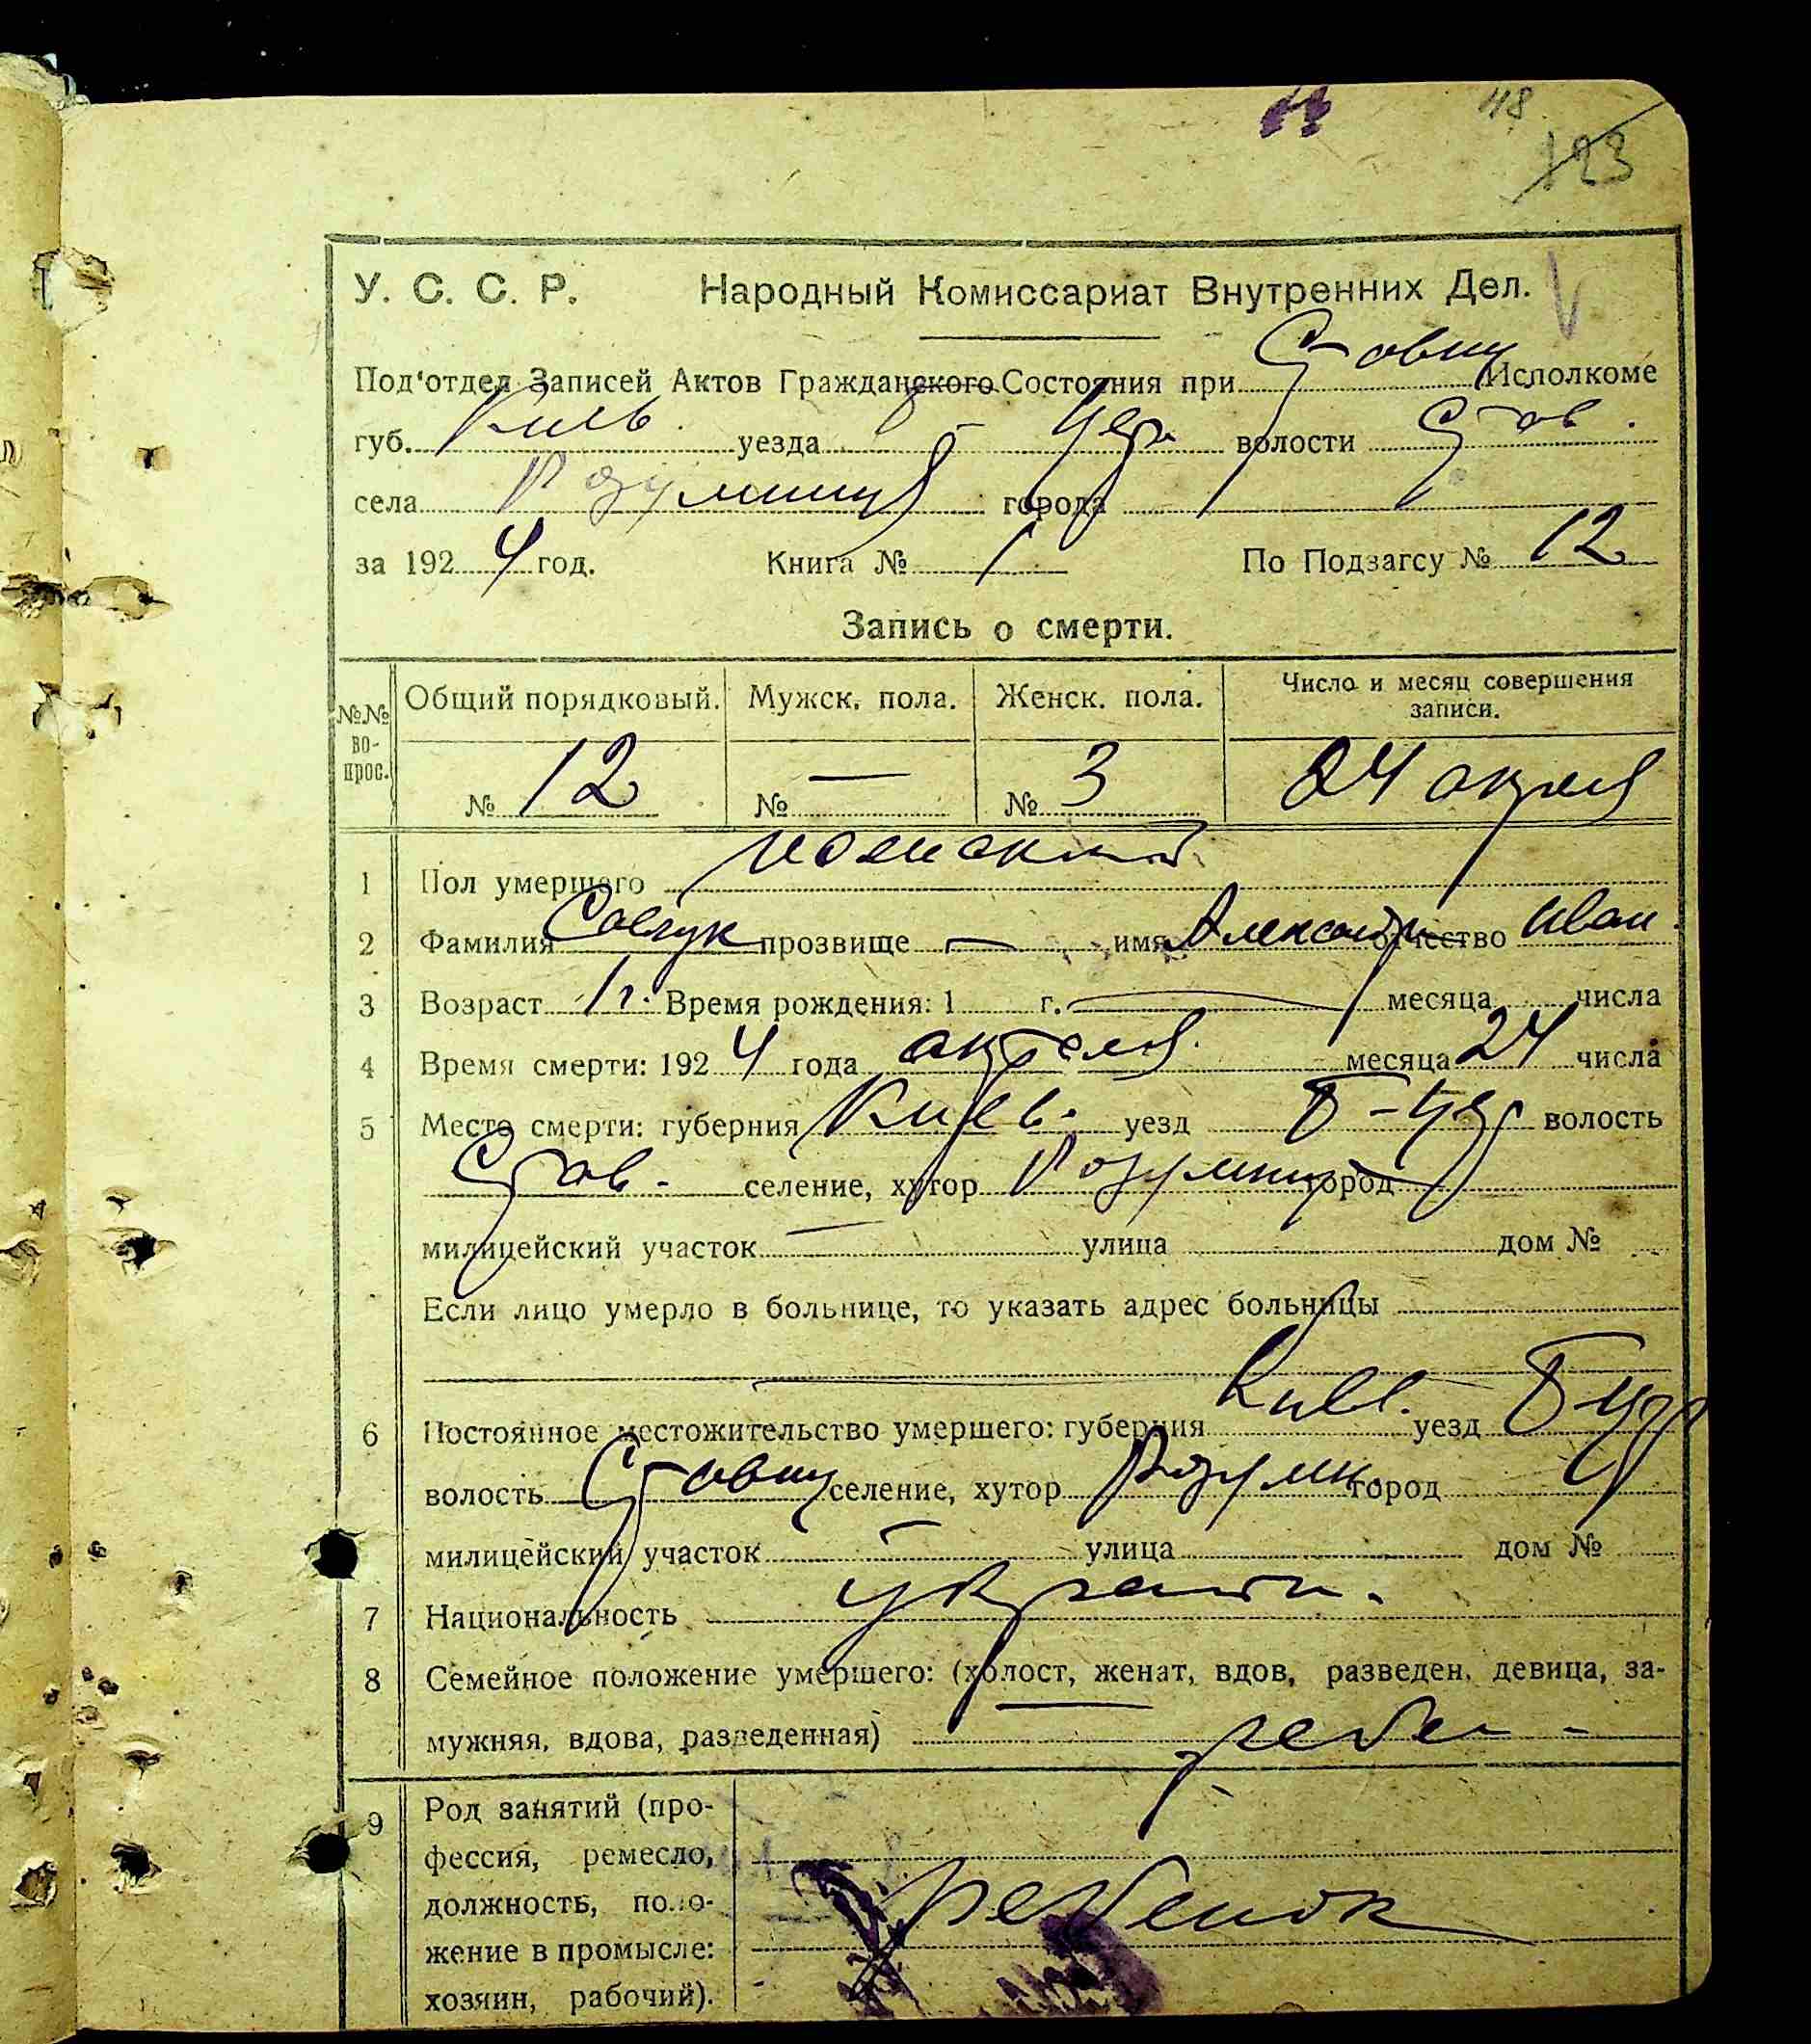 48
123
У. С. С. Р. Народный Комиссариат Внутренних Дел.
Под'отдел Записей Актов Гражданского Состояния при Ставищ Исполкоме
губ. Киев. уезда Б-Цер. волости Став.
села города
за 1924 год. Книга № 1 По Подзагсу № 12
Запись о смерти.
№№ во- прос. Общий порядковый. Мужск. пола. Женск. пола. Число и месяц совершения записи.
№ 12 № — № 3 24 апреля
1 Пол умершего женский
2 Фамилия Савчук прозвище — имя Александр отчество Иван.
3 Возраст 1 г. Время рождения: 1 г. — месяца числа
4 Время смерти: 1924 года апреля месяца 24 числа
5 Место смерти: губерния Киев. уезд Б-Цер волость
Став. селение, хутор город
милицейский участок — улица дом №
Если лицо умерло в больнице, то указать адрес больницы
6 Постоянное местожительство умершего: губерния Киев. уезд Б-Цер
волость Ставищ селение, хутор Розумн город
милицейский участок — улица дом №
7 Национальность украин.
8 Семейное положение умершего: (холост, женат, вдов, разведен, девица, за-
мужняя, вдова, разведенная) — ребен -
9 Род занятий (про-
фессия, ремесло,
должность, поло-
жение в промысле:
хозяин, рабочий).
ребенок